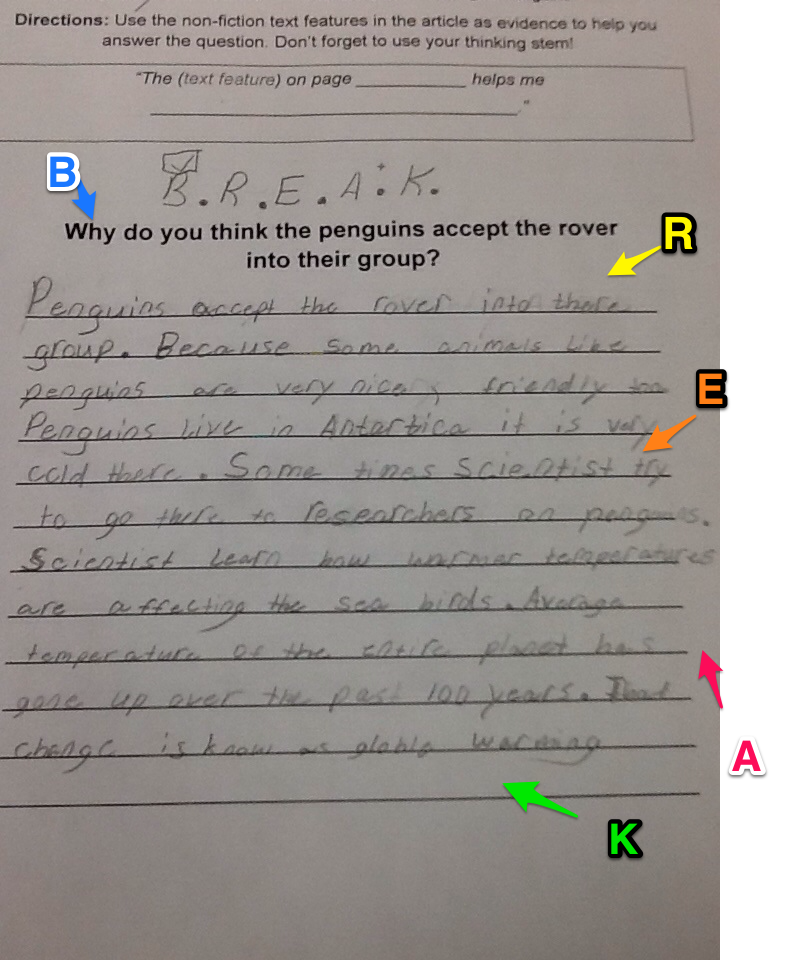 Directions: Use the non-fiction text features in the article as evidence to help you
answer the question. Don't forget to use your thinking stem!
"The (text feature) on page __________ helps me
__________."
B.R.E.A.K.
B
Why do you think the penguins accept the rover
into their group?
R
Penguins accept the rover into there
group. Because some animals like
penguins are very nice, friendly too
E
Penguins live in Antartica it is very
cold there. Some times Scientist try
to go there to researchers on penguins.
Scientist learn how warmer temperatures
are affecting the sea birds. Average
temperature of the entire planet has
gone up over the past 100 years. That
A
change is know as globle warming
K